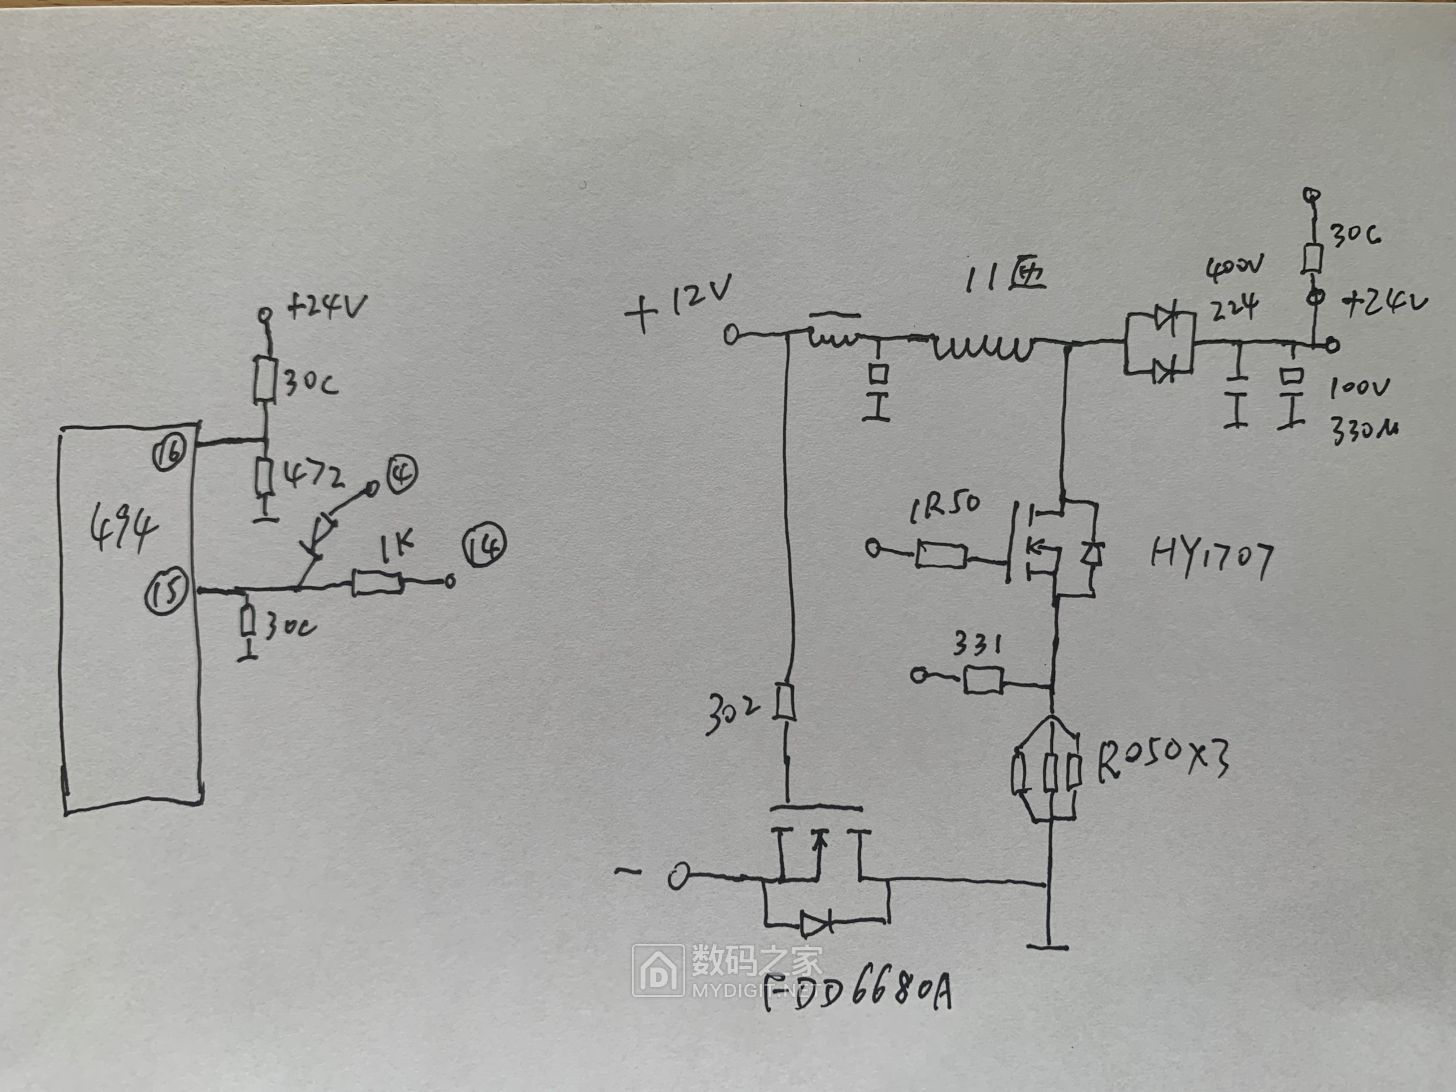 +24V
30C
16
472
4
494
1K
14
15
30C
+12V
11匝
400V
224
30C
+24V
100V
330μ
1R50
HY1707
331
302
R050×3
-
FDD6680A
数码之家
MYDIGIT.NET